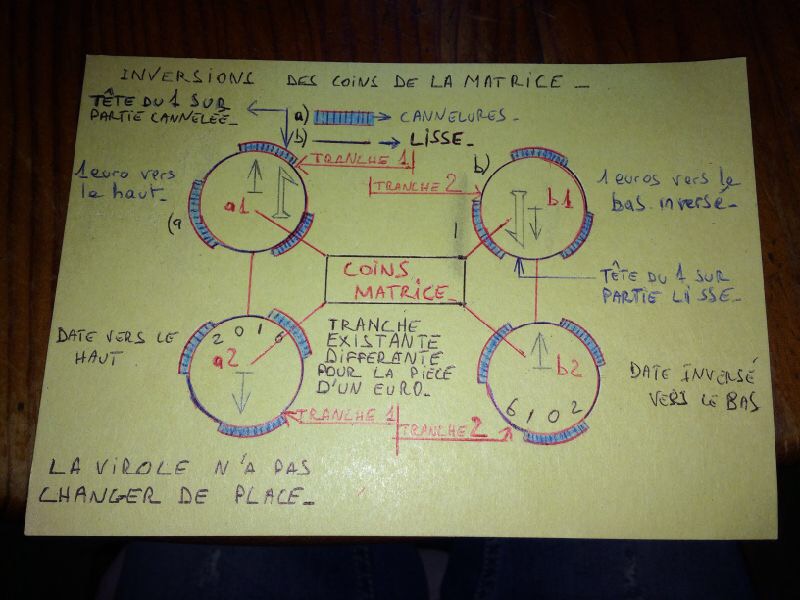 INVERSIONS DES COINS DE LA MATRICE_
TÊTE DU 1 SUR
PARTIE CANNELÉE_
a) CANNELURES_
b) LISSE_
TRANCHE 1
TRANCHE 2
1 euro vers
le haut_
(a
a1
b)
b1
1 euros vers le
bas inversé_
COINS
MATRICE_
TÊTE DU 1 SUR
PARTIE LISSE_
DATE VERS LE
HAUT
2016
a2
TRANCHE
EXISTANTE
DIFFERANTE
POUR LA PIECE
D'UN EURO_
b2
6102
DATE INVERSÉ
VERS LE BAS
TRANCHE 1
TRANCHE 2
LA VIROLE N'A PAS
CHANGER DE PLACE_